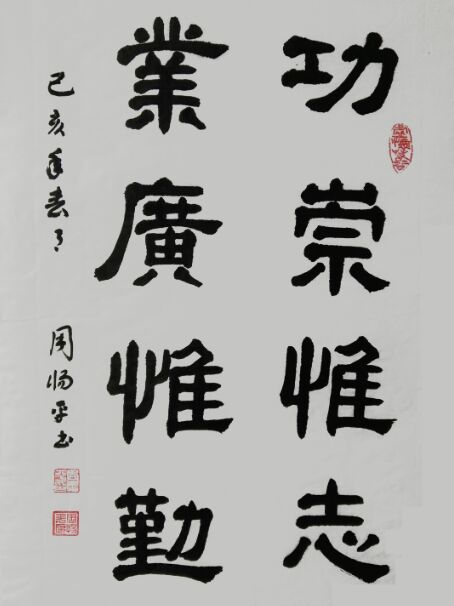 功崇惟志
業廣惟勤
己亥年春月
周炀平书